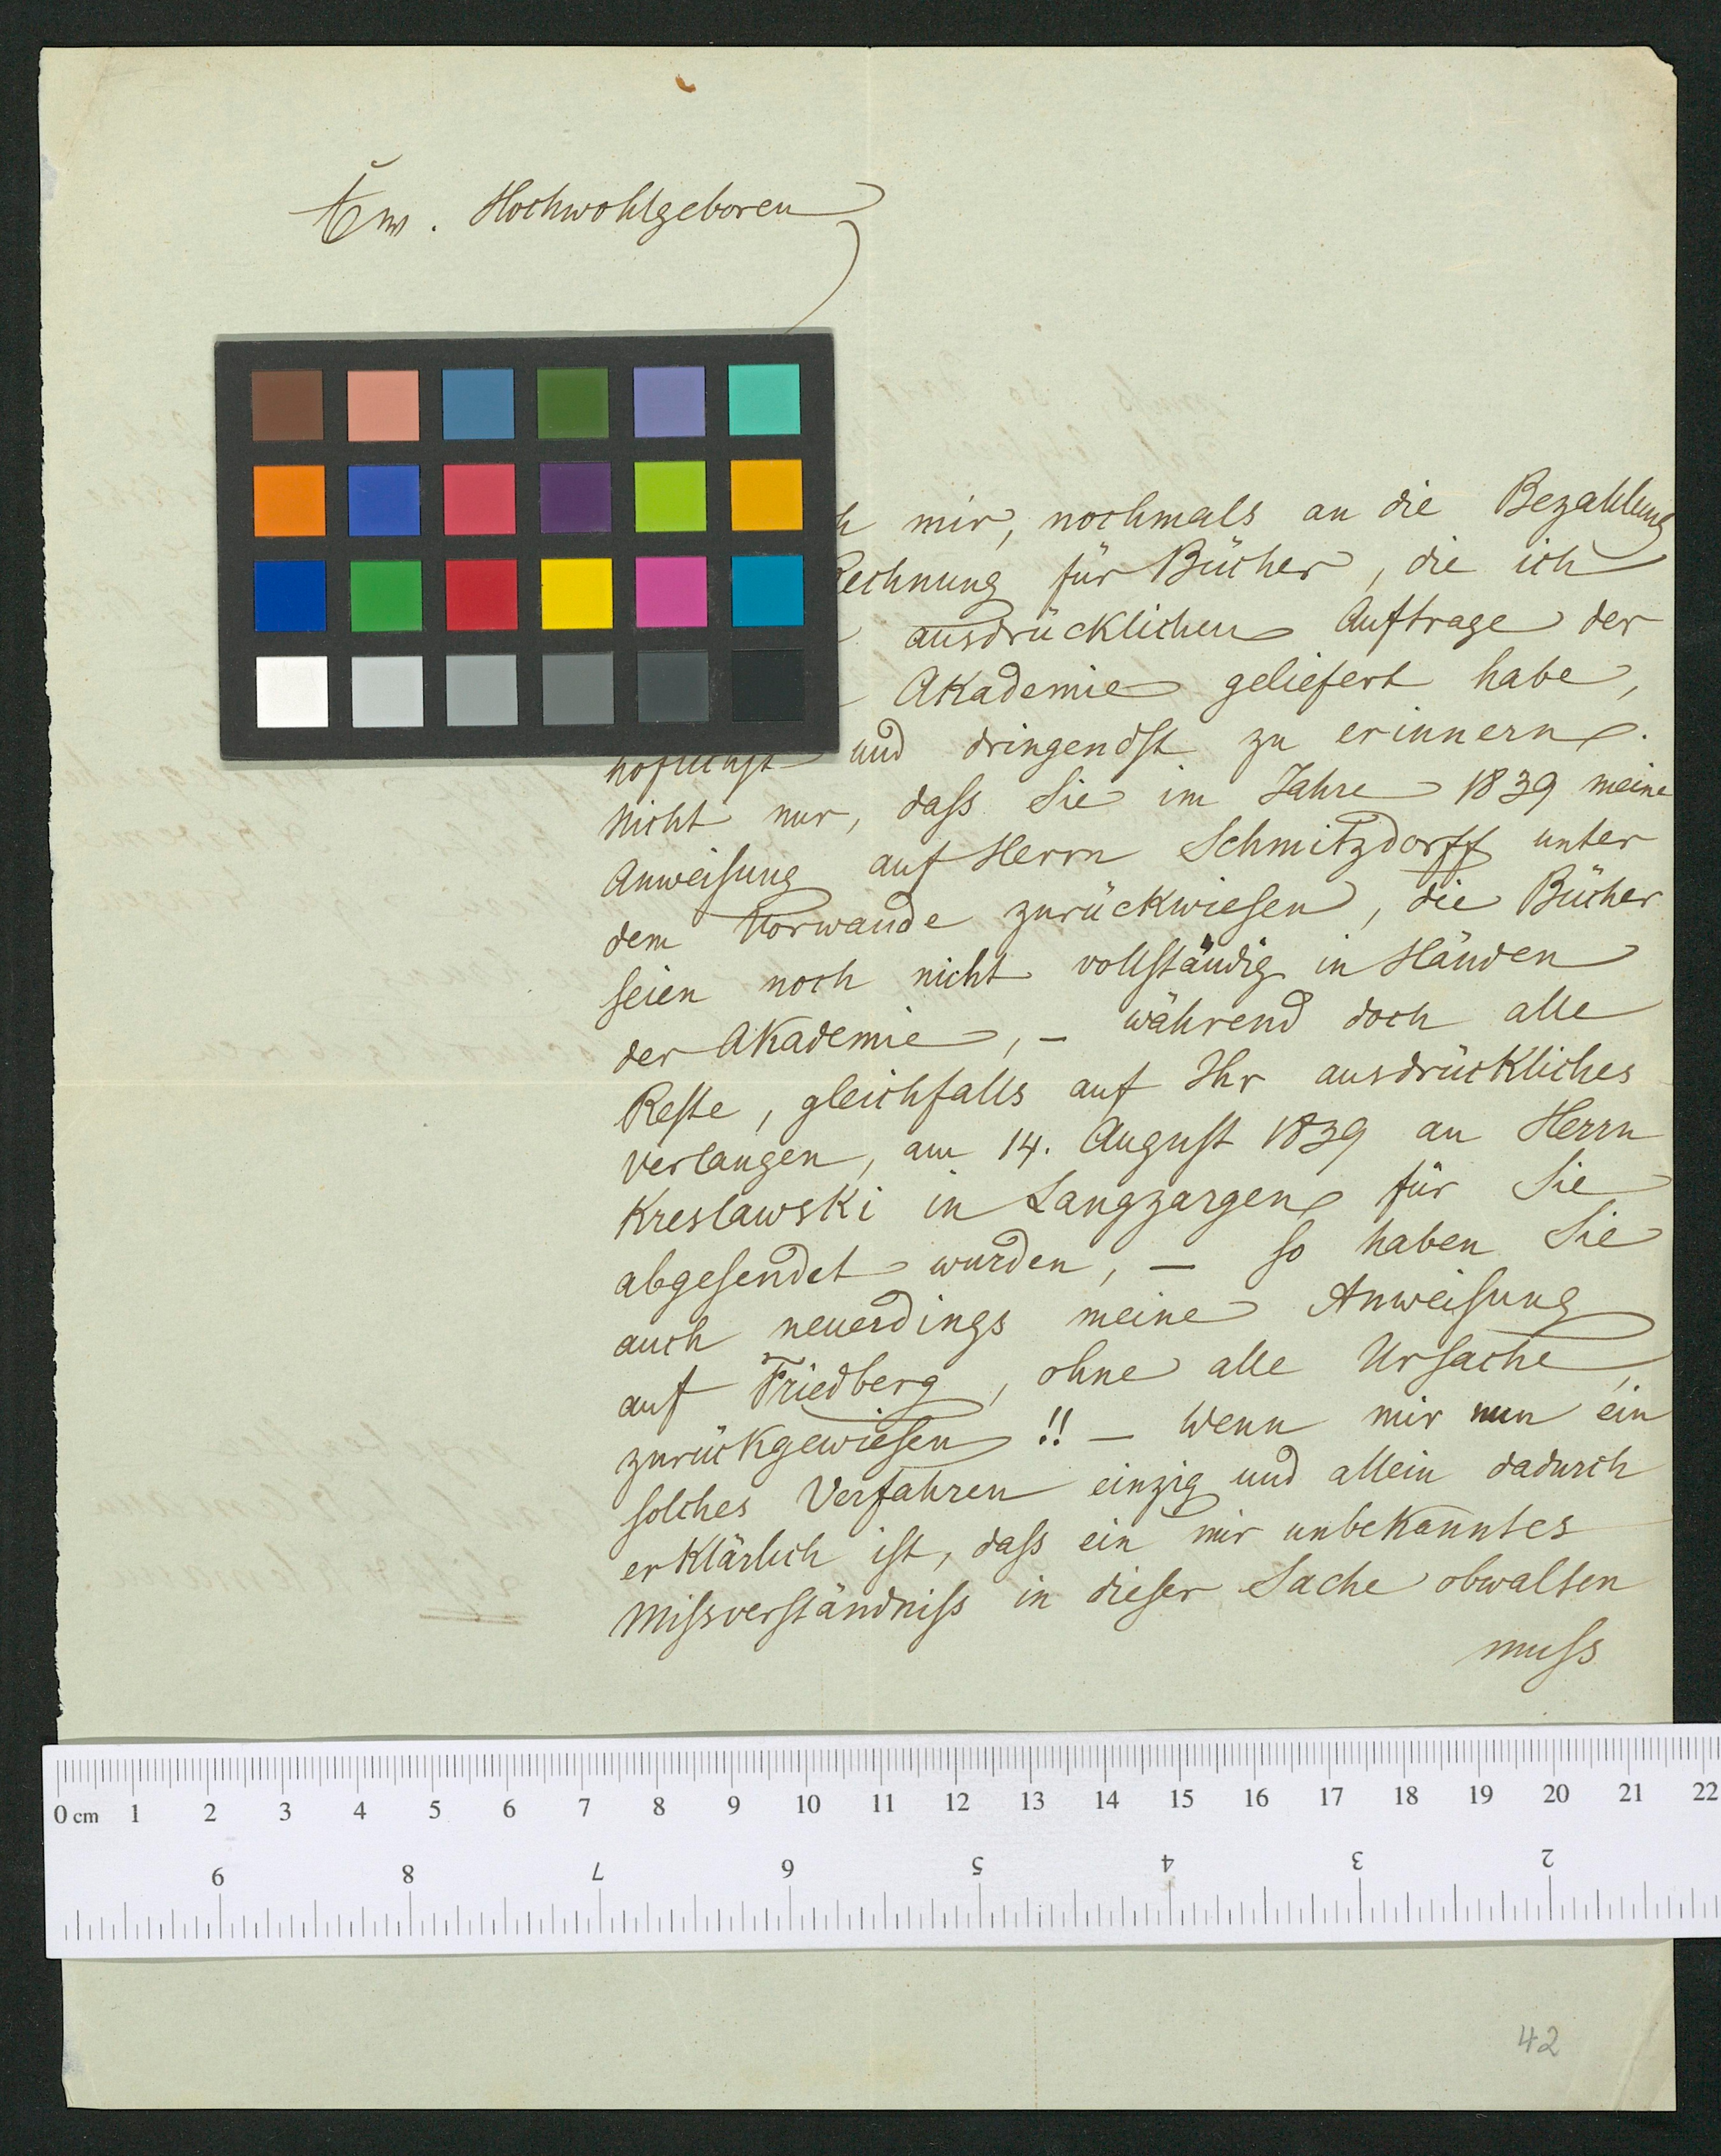 Ew. Hochwohlgeboren
h mir, nochmals an die Bezahlung
Rechnung für Bücher, die ich
ausdrücklichen Auftrage der
Akademie geliefert habe,
höflichst und dringendst zu erinnern.
Nicht nur, dass Sie im Jahre 1839 meine
Anweisung auf Herrn Schmitzdorff unter
dem Vorwande zurückwiesen, die Bücher
seien noch nicht vollständig in Händen
der Akademie, – während doch alle
Reste, gleichfalls auf Ihr ausdrückliches
Verlangen, am 14. August 1839 an Herrn
Kreslawski in Langzargen für Sie
abgesendet wurden, – so haben Sie
auch neuerdings meine Anweisung
auf Friedberg, ohne alle Ursache,
zurückgewiesen!! – Wenn mir nun ein
solches Verfahren einzig und allein dadurch
erklärlich ist, dass ein mir unbekanntes
Missverständniss in dieser Sache obwalten
muss
0 cm 1 2 3 4 5 6 7 8 9 10 11 12 13 14 15 16 17 18 19 20 21 22
9 8 7 6 5 4 3 2
42